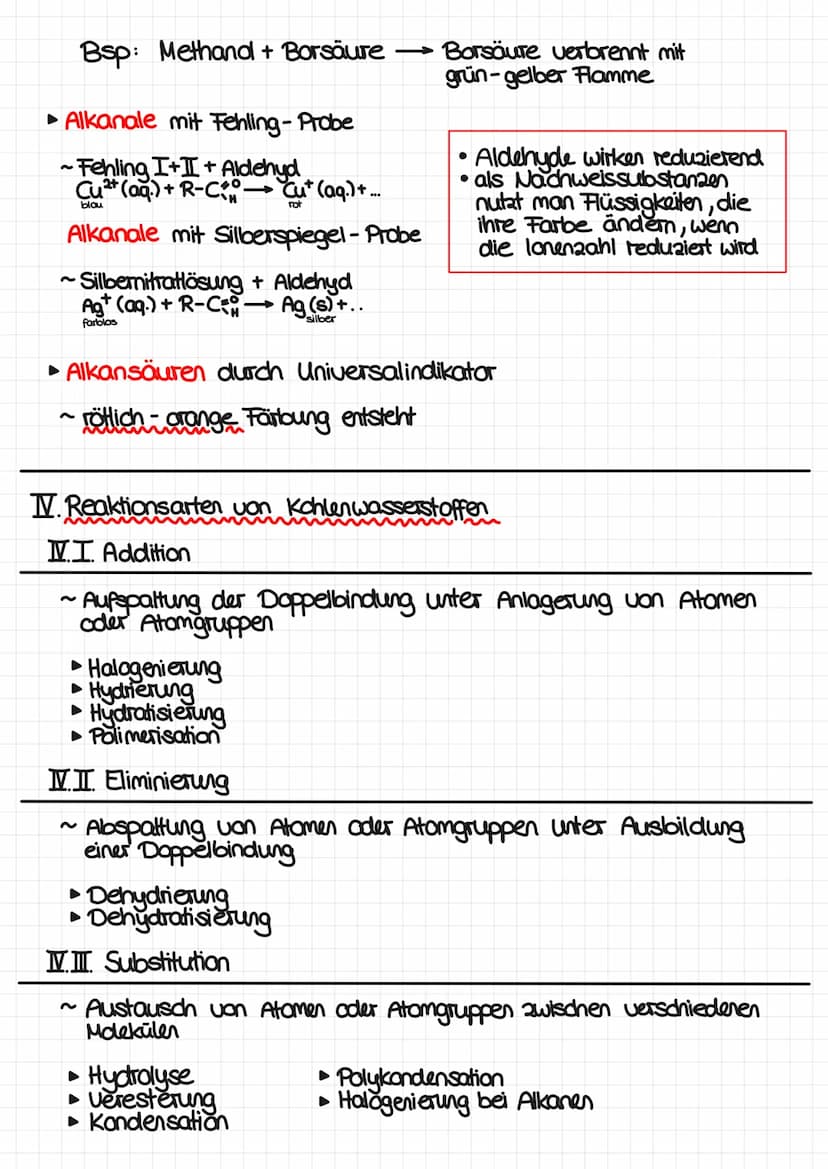 Bsp: Methanol + Borsäure → Borsäure verbrennt mit
grün-gelber Flamme
▸ Alkanale mit Fehling-Probe
~ Fehling I+II + Aldehyd
Cu²⁺(aq.) + R-C=O H → Cu⁺(aq.)+...
blau rot
Alkanale mit Silberspiegel-Probe
~ Silbernitratlösung + Aldehyd
Ag⁺(aq.) + R-C=O H → Ag(s)+..
farblos silber
• Aldehyde wirken reduzierend
• als Nachweissubstanzen
nutzt man Flüssigkeiten, die
ihre Farbe ändern, wenn
die Ionenzahl reduziert wird
▸ Alkansäuren durch Universalindikator
~ rötlich-orange Färbung entsteht
IV. Reaktionsarten von Kohlenwasserstoffen
IV.I. Addition
~ Aufspaltung der Doppelbindung unter Anlagerung von Atomen
oder Atomgruppen
▸ Halogenierung
▸ Hydrierung
▸ Hydratisierung
▸ Polimerisation
IV.II. Eliminierung
~ Abspaltung von Atomen oder Atomgruppen unter Ausbildung
einer Doppelbindung
▸ Dehydrierung
▸ Dehydratisierung
IV.III. Substitution
~ Austausch von Atomen oder Atomgruppen zwischen verschiedenen
Molekülen
▸ Hydrolyse
▸ Veresterung
▸ Kondensation
▸ Polykondensation
▸ Halogenierung bei Alkanen